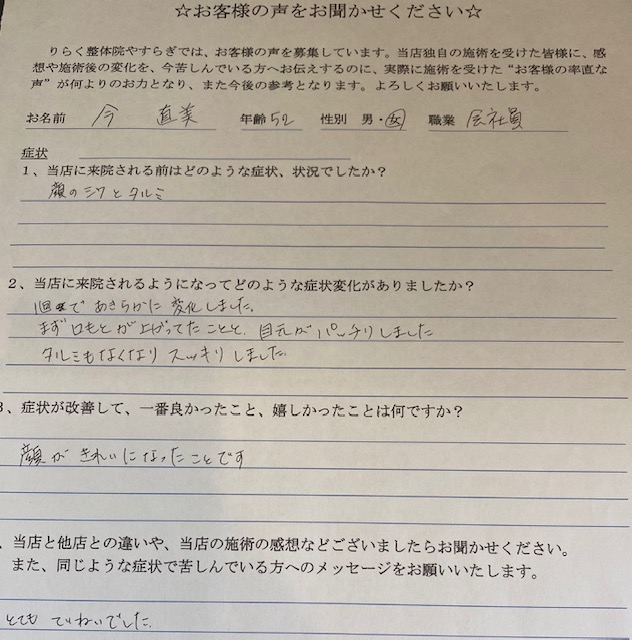 ☆お客様の声をお聞かせください☆
りらく整体院やすらぎでは、お客様の声を募集しています。当店独自の施術を受けた皆様に、感
想や施術後の変化を、今苦しんでいる方へお伝えするのに、実際に施術を受けた“お客様の率直な
声”が何よりのお力となり、また今後の参考となります。よろしくお願いいたします。
お名前 今 直美 年齢 52 性別 男・女 職業 会社員
症状
1、当店に来院される前はどのような症状、状況でしたか？
顔のシワとタルミ
2、当店に来院されるようになってどのような症状変化がありましたか？
1回で あきらかに 変化しました。
まず 口もとが 上がってたことと、目元が パッチリしました
タルミもなくなり スッキリしました。
3、症状が改善して、一番良かったこと、嬉しかったことは何ですか？
顔が きれいになったことです
、当店と他店との違いや、当店の施術の感想などございましたらお聞かせください。
また、同じような症状で苦しんでいる方へのメッセージをお願いいたします。
とても ていねいでした。